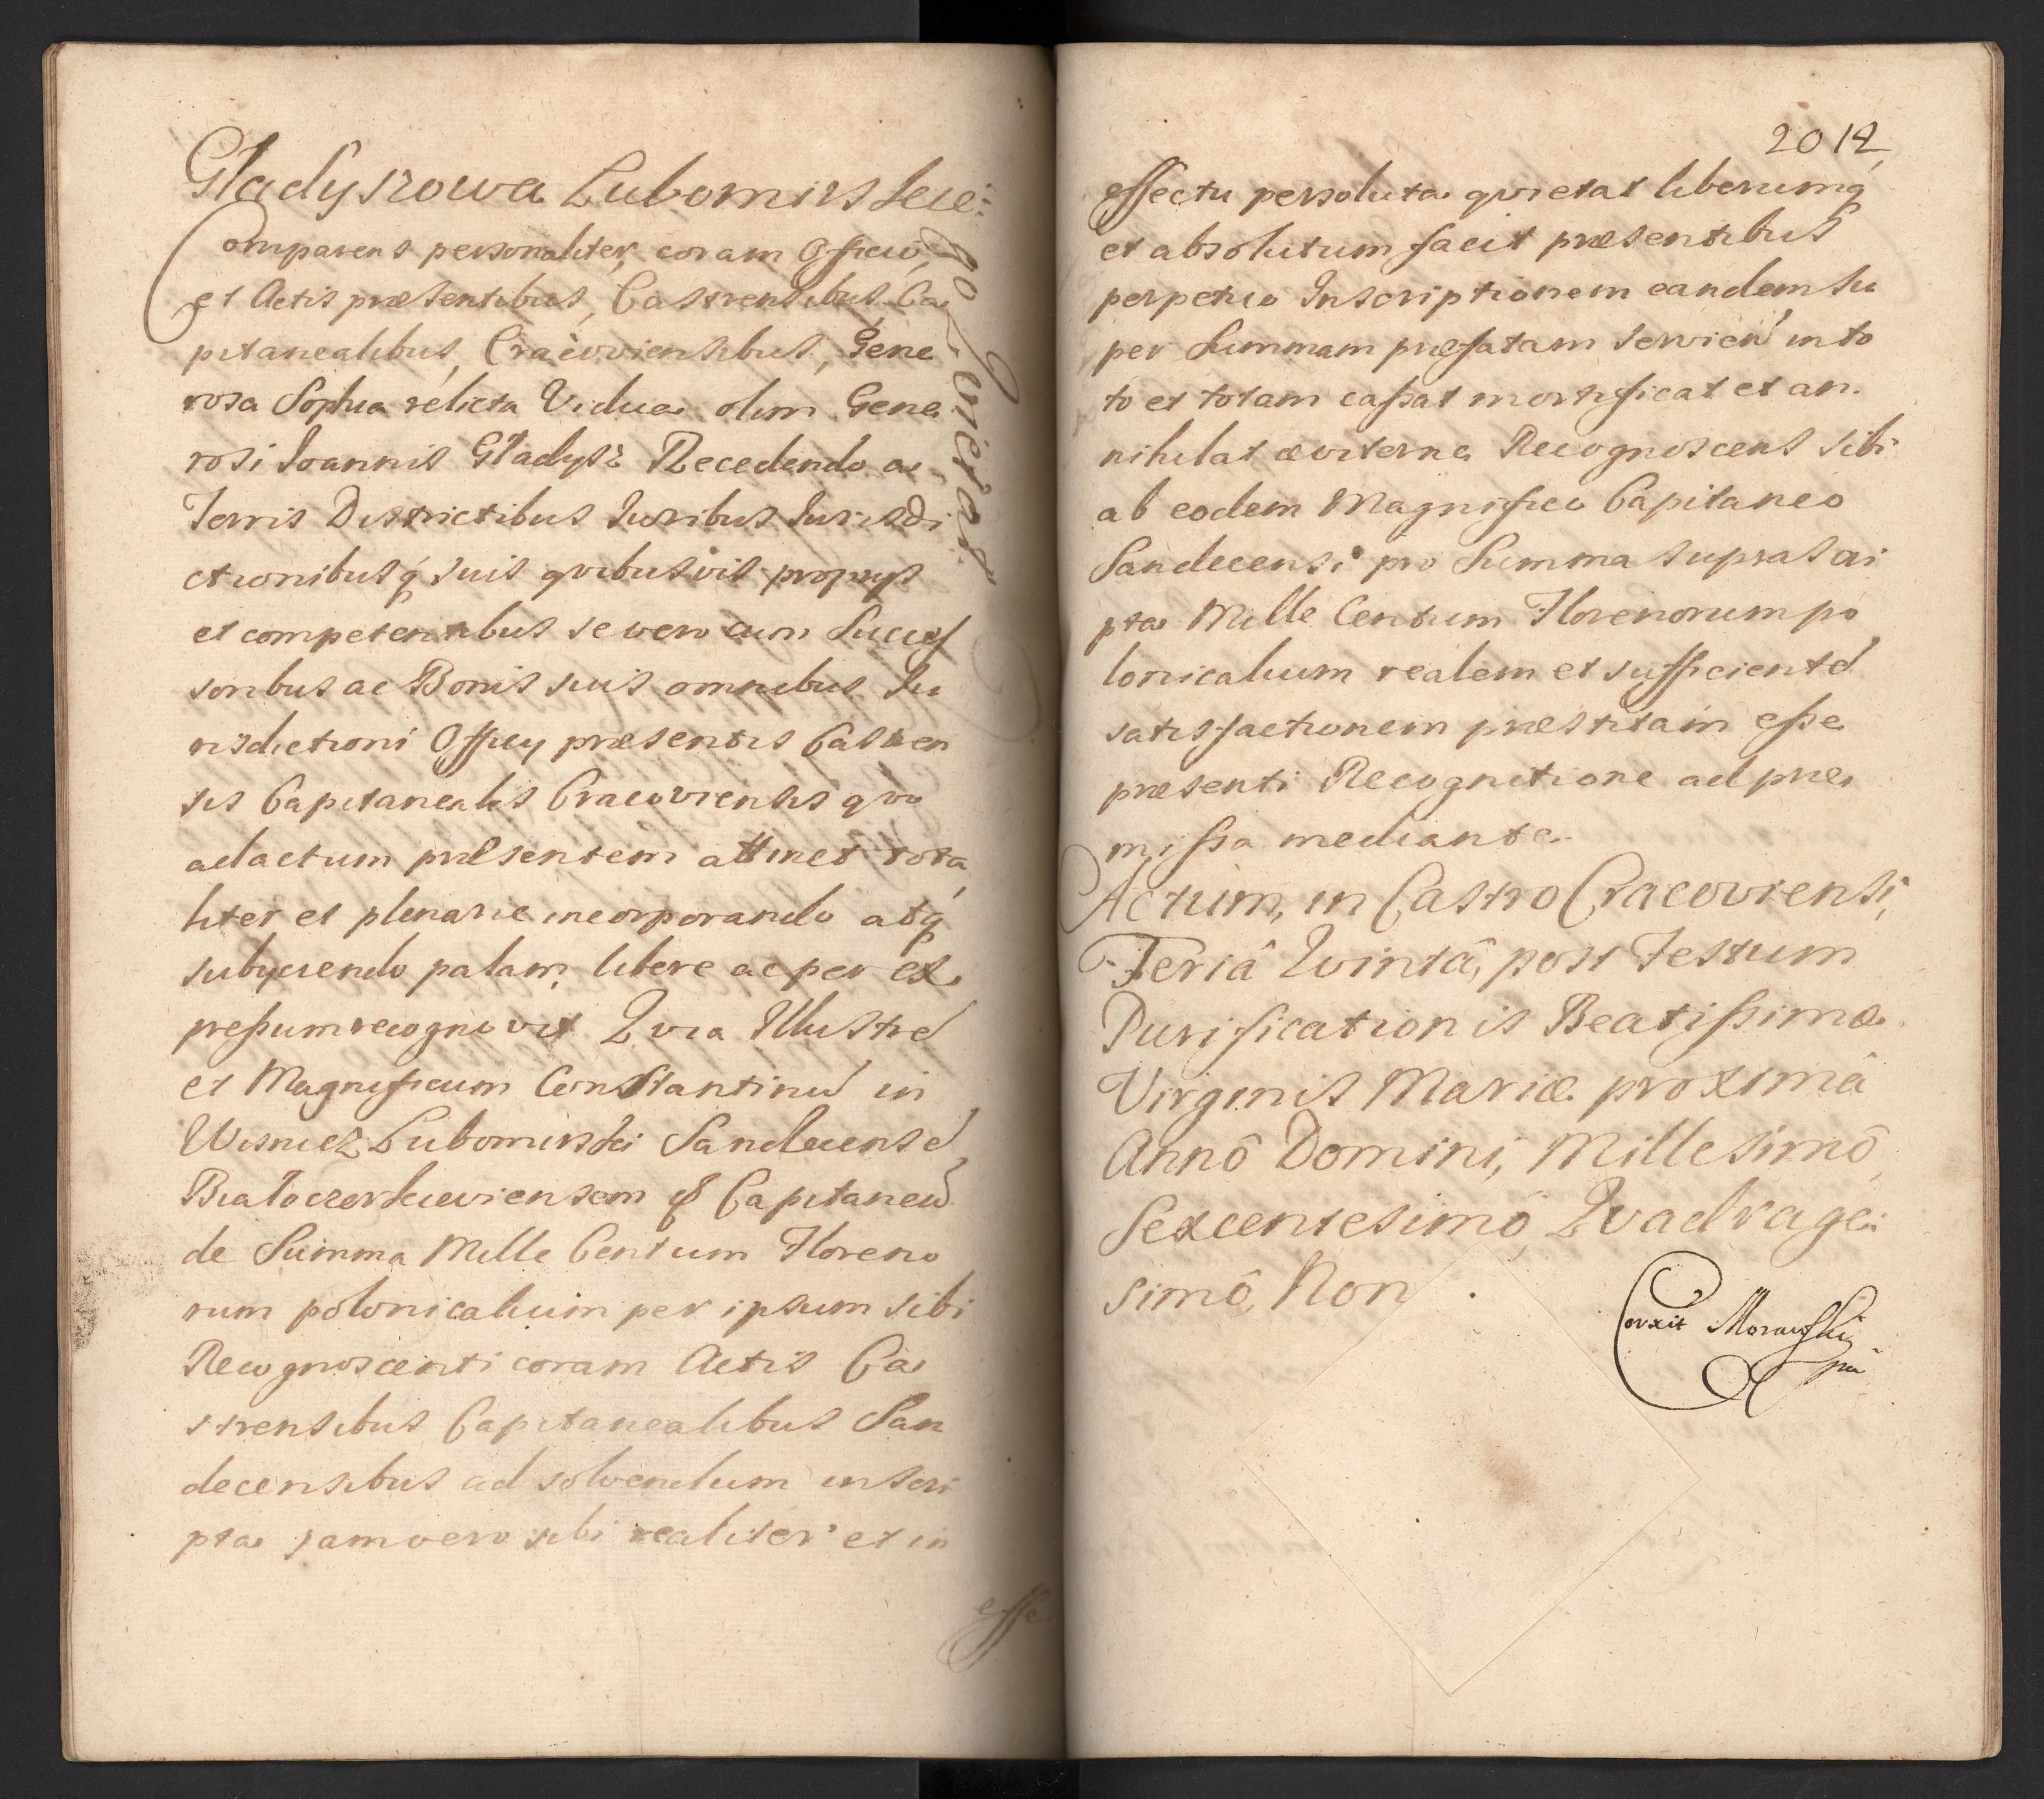 Gładyszowa Lubomirskie:
Comparens personaliter, coram Officio,
et Actis præsentibus, Castrensibus Ca
pitanealibus, Cracoviensibus, Gene
rosa Sophia relicta Vidua olim Gene
rosi Joannis Gładysz Recedendo a
Terris Districtibus Juribus Jurisdi
ctionibusq́ suis qvibusvis proprys
et competentibus se vero cum Succes
soribus ac Bonis suis omnibus Ju
risdictioni Officy præsentis Castren
sis Capitanealis Cracoviensis qvo
ad actum præsentem attinet tota
liter et plenarie incorporando atq́
subyciendo palam libere ac per ex
pressum recognovit Qvia Illustrē
et Magnificum Constantinū in
Wisnicz Lubomirski Sandecensē
Białocerkiewiensem & Capitaneū
de Summa Mille Centum Floreno
rum polonicalium per ipsum sibi
Recognoscenti coram Actis Ca
strensibus Capitanealibus San
decensibus ad solvendum inscri
pta jam vero sibi realiter et in
effe
qvietat
2012
effectu persoluta qvietat liberumq́
et absolutum facit præsentibus
perpetuo Inscriptionem eandem su
per Summam præfatam servien̄ in to
to et totam cassat mortificat et an
nihilat æviterne Recognoscens sibi
ab eodem Magnifico Capitaneo
Sandecensi pro Summa suprascri
pta Mille Centum Florenorum po
lonicalium realem et sufficientē
satisfactionem præstitam esse
præsenti Recognitione ad præ
missa mediante
Actum, in Castro Cracoviensi,
Feriâ Qvintâ, post Festum
Purificationis Beatissimæ
Virginis Mariæ proximâ
Annô Domini, Millesimô
Sexcentesimô Qvadrage
simô, Non
Correxit Morawski
mp